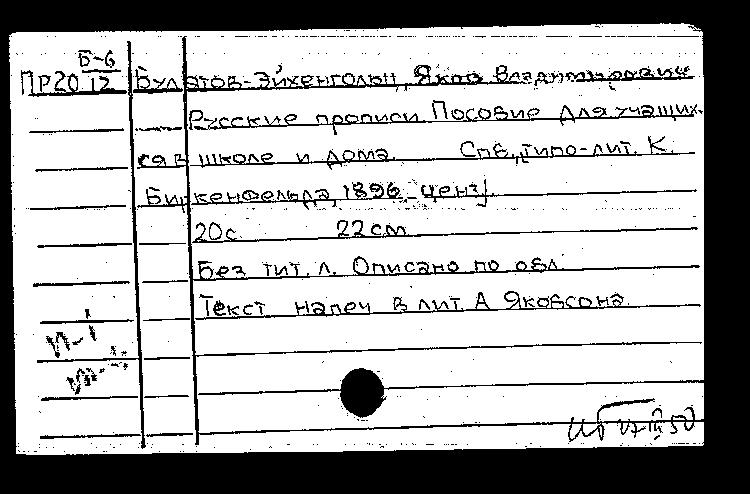 Б-6
ПР20 12 Булатов-Эйхенгольц, Яков Владимирович
Русские прописи. Пособие для учащих-
ся в школе и дома. Спб., типо-лит. К.
Биркенфельда, 1896 ценз].
20 с. 22 см.
Без тит. л. Описано по обл.
Текст напеч. в лит. А Якобсона.